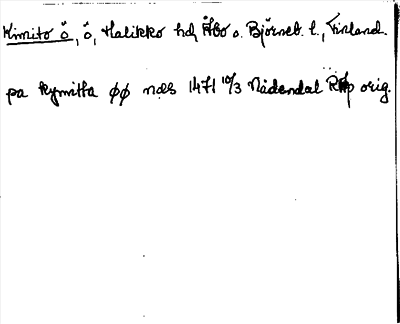 Kimito ö, ö, Halikko hd, Åbo o. Björneb. l., Finland.
pa kymitta øø næs 1471 10/3 Nådendal RAp orig.